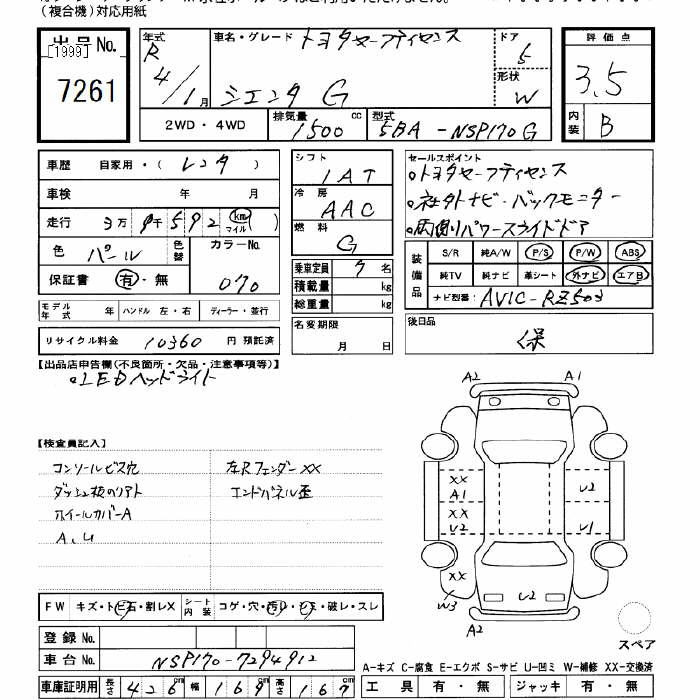 (複合機)対応用紙
出品No. [1999] 7261
年式 R 4/1月
車名・グレード トヨタセーフティセンス
シエンタ G
ドア 5
形状 W
評価点 3.5
内装 B
2WD・4WD 排気量 1500 cc 型式 5BA-NSP170G
車歴 自家用・(レンタ)
車検 年 月
走行 3万9千592 km マイル ( )
色 パール 色替 カラーNo. 070
保証書 有・無
モデル年式 年 ハンドル 左・右 ディーラー・並行
リサイクル料金 10360 円 預託済
シフト IAT
冷房 AAC
燃料 G
乗車定員 7名
積載量 kg
総重量 kg
名変期限 月 日
セールスポイント
・トヨタセーフティセンス
・社外ナビ・バックモニター
・両側パワースライドドア
装備品 S/R 純A/W P/S P/W ABS
純TV 純ナビ 革シート 外ナビ エアB
ナビ型番: AVIC-RZ503
後日品 保
【出品店申告欄(不良箇所・欠品・注意事項等)】
・LEDヘッドライト
【検査員記入】
コンソールビス穴 左Rフェンダー XX
ダッシュ板のリアト エンドパネル歪
ホイールカバーA
A、U
A2 A1
XX
A1
U2
XX
U2
U1
XX
W3
U2
A2
スペア
FW キズ・トビ石・割レX シート内装 コゲ・穴・汚レ・シミ・破レ・スレ
登録No.
車台No. NSP170-7294912
A-キズ C-腐食 E-エクボ S-サビ U-凹ミ W-補修 XX-交換済
車庫証明用 長さ 426cm 幅 169cm 高さ 167cm
工具 有・無 ジャッキ 有・無